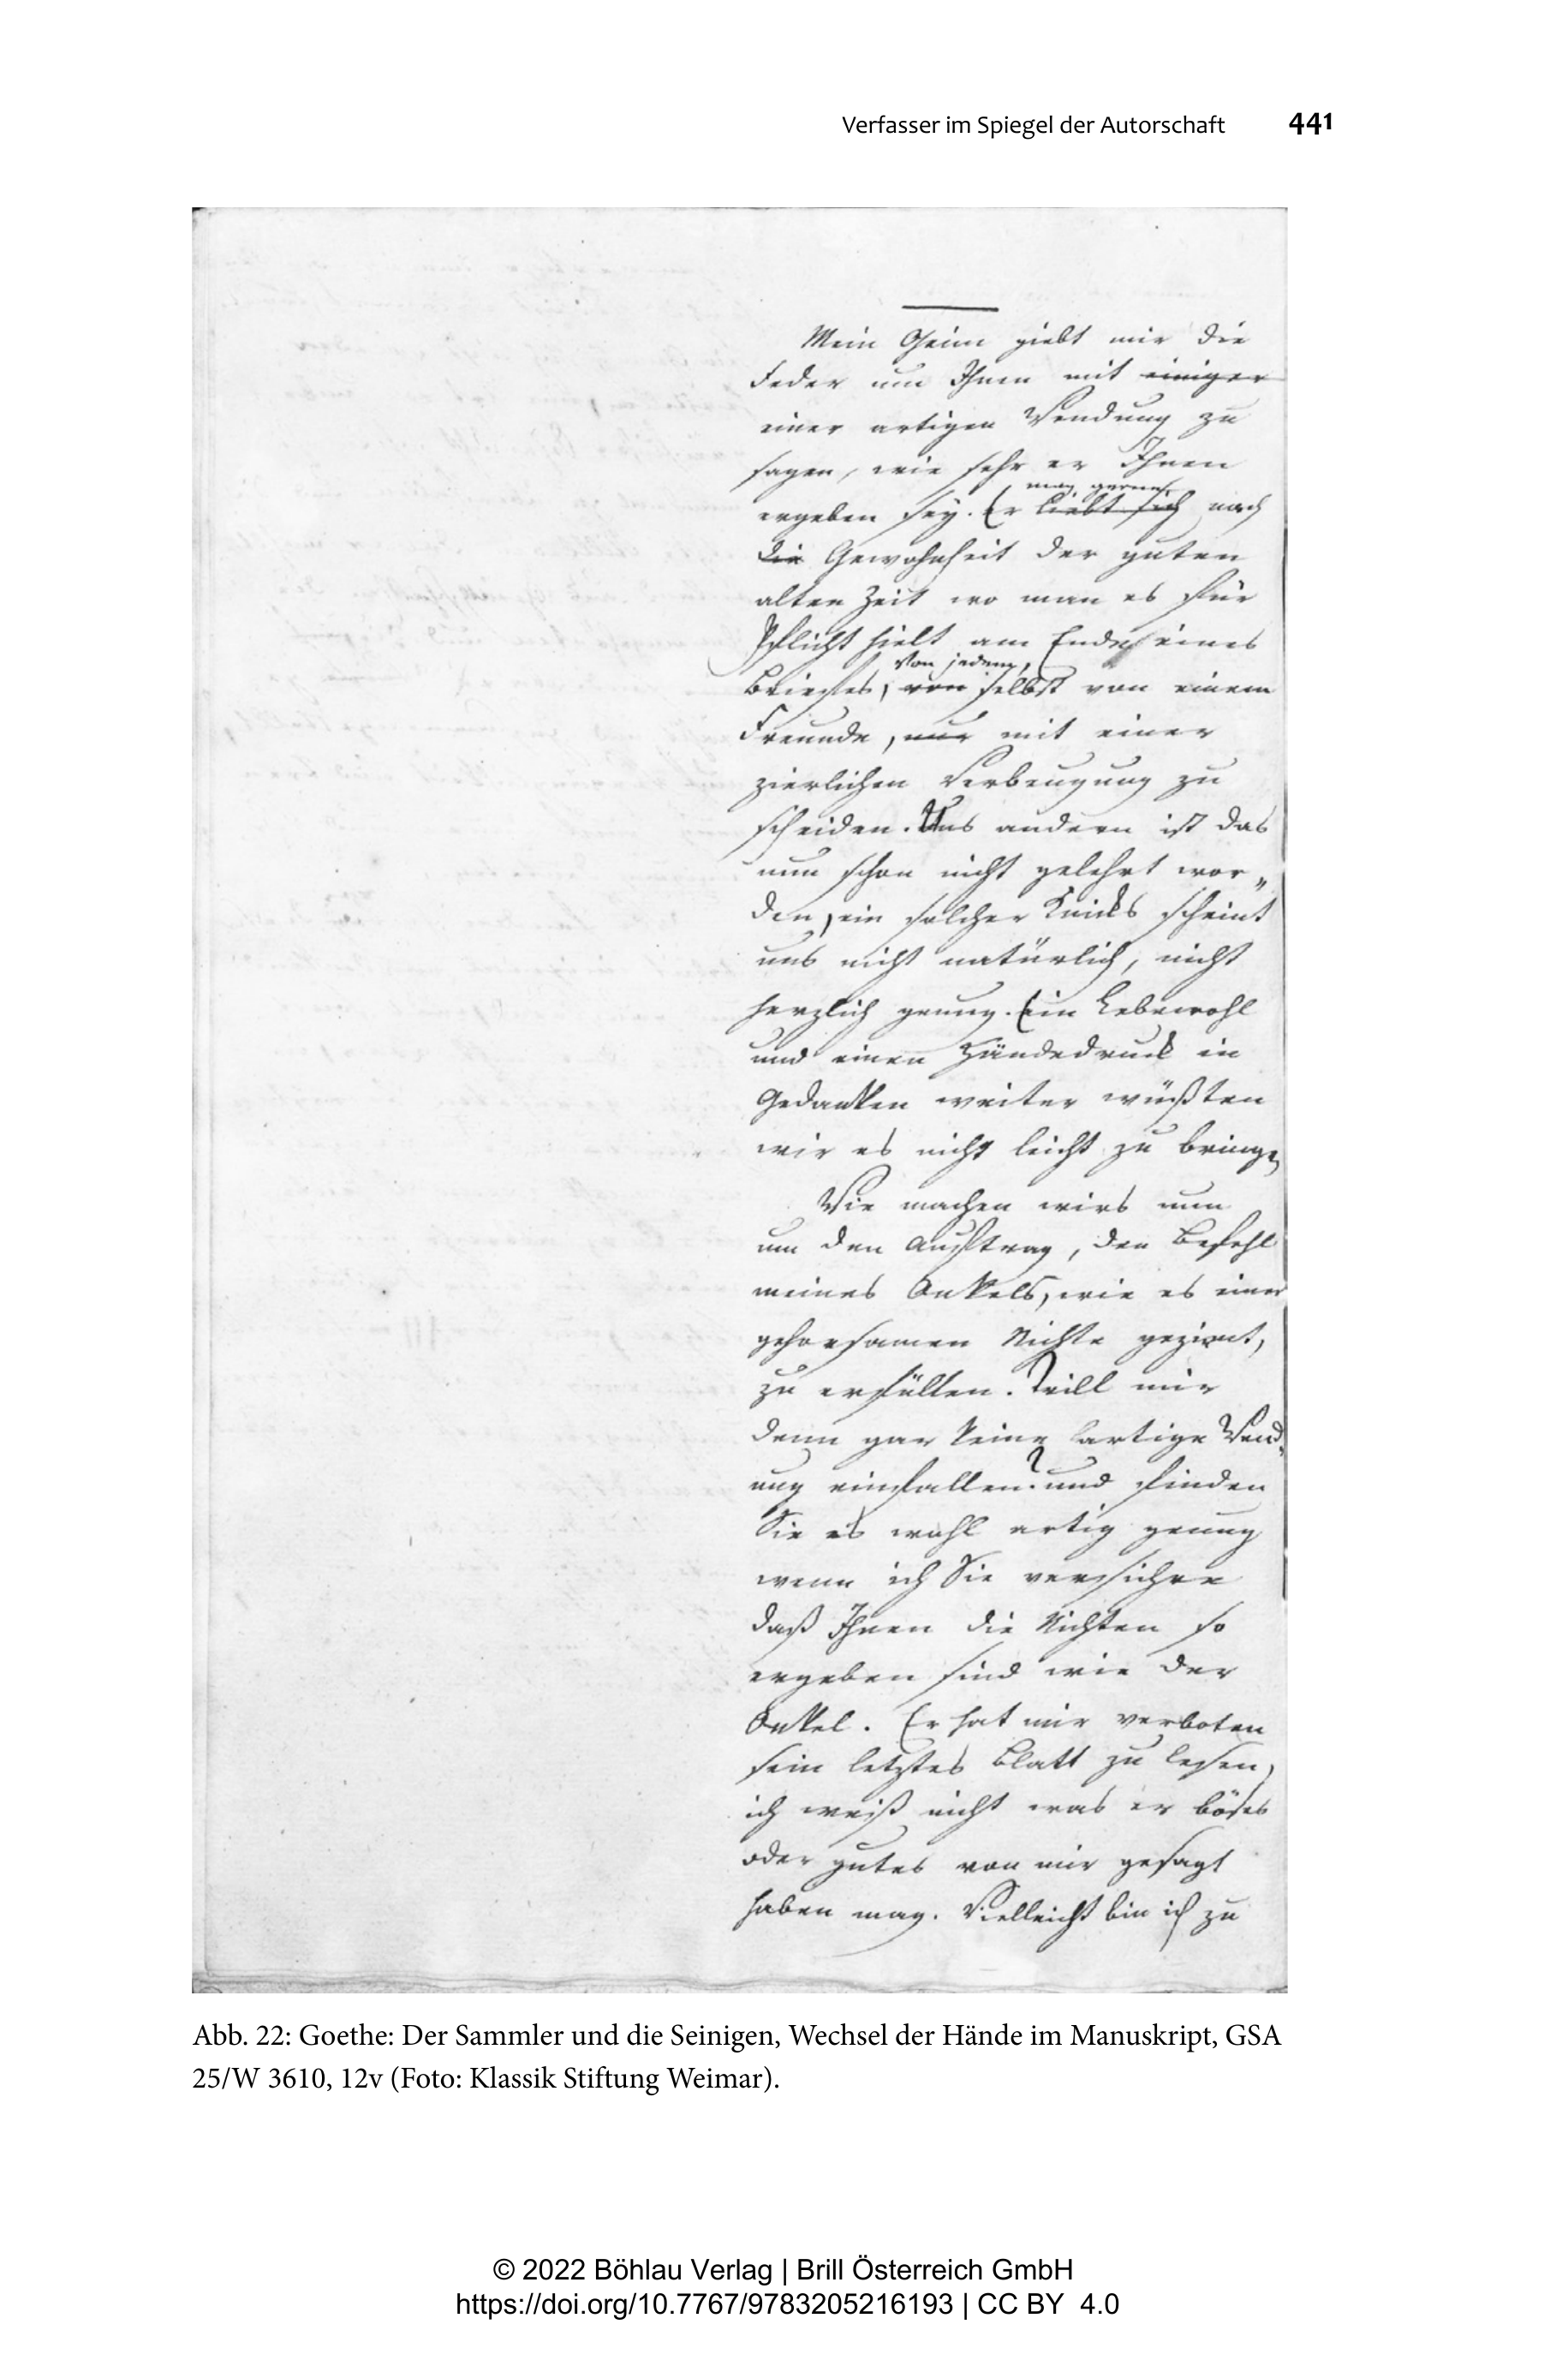 Verfasser im Spiegel der Autorschaft 441
Mein Oheim giebt mir die
Feder um Ihnen mit einiger
einer artigen Wendung zu
sagen, wie sehr er Ihnen
mag gerne,
ergeben sey. Er liebt sich nach
die Gewohnheit der guten
alten Zeit wo man es für
Pflicht hielt am Ende eines
von jedem,
Briefes, von selbst von einem
Freunde, nur mit einer
zierlichen Verbeugung zu
scheiden. Uns andern ist das
nun schon nicht gelehrt wor„
den, ein solcher Knicks scheint
uns nicht natürlich, nicht
herzlich genung. Ein Lebewohl
und einen Händedruck in
Gedanken weiter wüßten
wir es nicht leicht zu bringen
Wie machen wirs nun
um den Auftrag, den Befehl
meines Onkels, wie es einer
gehorsamen Nichte geziemt,
zu erfüllen. Will mir
denn gar keine artige Wend„
ung einfallen? und finden
Sie es wohl artig genung
wenn ich Sie versichre
daß Ihnen die Nichten so
ergeben sind wie der
Onkel. Er hat mir verboten
sein letztes Blatt zu lesen,
ich weiß nicht was er böses
oder gutes von mir gesagt
haben mag. Vielleicht bin ich zu
Abb. 22: Goethe: Der Sammler und die Seinigen, Wechsel der Hände im Manuskript, GSA
25/W 3610, 12v (Foto: Klassik Stiftung Weimar).
© 2022 Böhlau Verlag | Brill Österreich GmbH
https://doi.org/10.7767/9783205216193 | CC BY 4.0